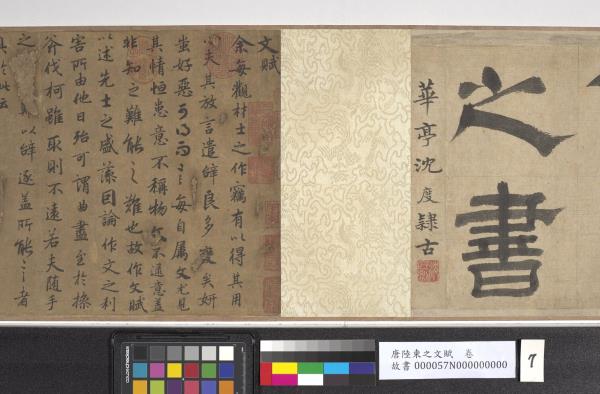 之書
華亭沈度隸古
文賦
余每觀材士之作竊有以得其用
心夫其放言遣辭良多變矣妍
蚩好惡可得而言每自屬文尤見
其情恒患意不稱物文不逮意蓋
非知之難能之難也故作文賦
以述先士之盛藻因論作文之利
害所由他日殆可謂曲盡至於操
斧伐柯雖取則不遠若夫隨手
之難以辭逐蓋所能言者
具於此云
唐陸柬之文賦 卷
故書 000057N000000000
7